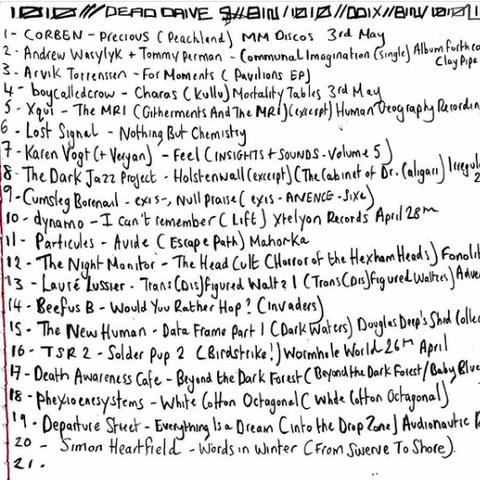 1010///DEAD DRIVE S#BIN/1010//001X//BIN/010
1- CORBEN - Precious (Peachland) MM Discos 3rd May
2- Andrew Wasylyk + Tommy Perman - Communal Imagination (single) Album forthco
Clay Pipe
3 - Arvik Torrenssen - For Moments (Pavilions EP)
4 - boycalledcrow - Charas (Kullu) Mortality Tables 3rd May
5 - Xqui - The MRI (Githerments And The MRI) (excerpt) Human Geography Recordin
6 - Lost Signal - Nothing But Chemistry
7 - Karen Vogt (+ Veryan) - Feel (INSIGHTS + SOUNDS - Volume 5)
8 - The Dark Jazz Project - Holstenwall (excerpt) (The Cabinet of Dr. Caligari) Irregula
9 - Cumsleg Borenail - exis-, Null Praise (exis - ANENCE - Sixe)
10 - dynamo - I can't remember (Lift) Xtelyon Records April 28th
11 - Particules - Avide (Escape Path) Mahorka
12 - The Night Monitor - The Head Cult (Horror of the Hexham Heads) Fonolit
13 - Lauré Lussier - Trans(Dis)figured Waltz 1 (Trans(Dis)figured Waltzes) Adve
14 - Beefus B - Would You Rather Hop? (Invaders)
15 - The New Human - Data Frame Part 1 (Dark Waters) Douglas Deep's Shed Collec
16 - TSR 2 - Solder Pup 2 (Birdstrike!) Wormhole World 26th April
17 - Death Awareness Cafe - Beyond the Dark Forest (Beyond the Dark Forest/Baby Blue
18 - phexioenesystems - White Cotton Octagonal (White Cotton Octagonal)
19 - Departure Street - Everything Is a Dream (into the Drop Zone) Audionautic R
20 - Simon Heartfield - Words in Winter (From Swerve To Shore).
21.